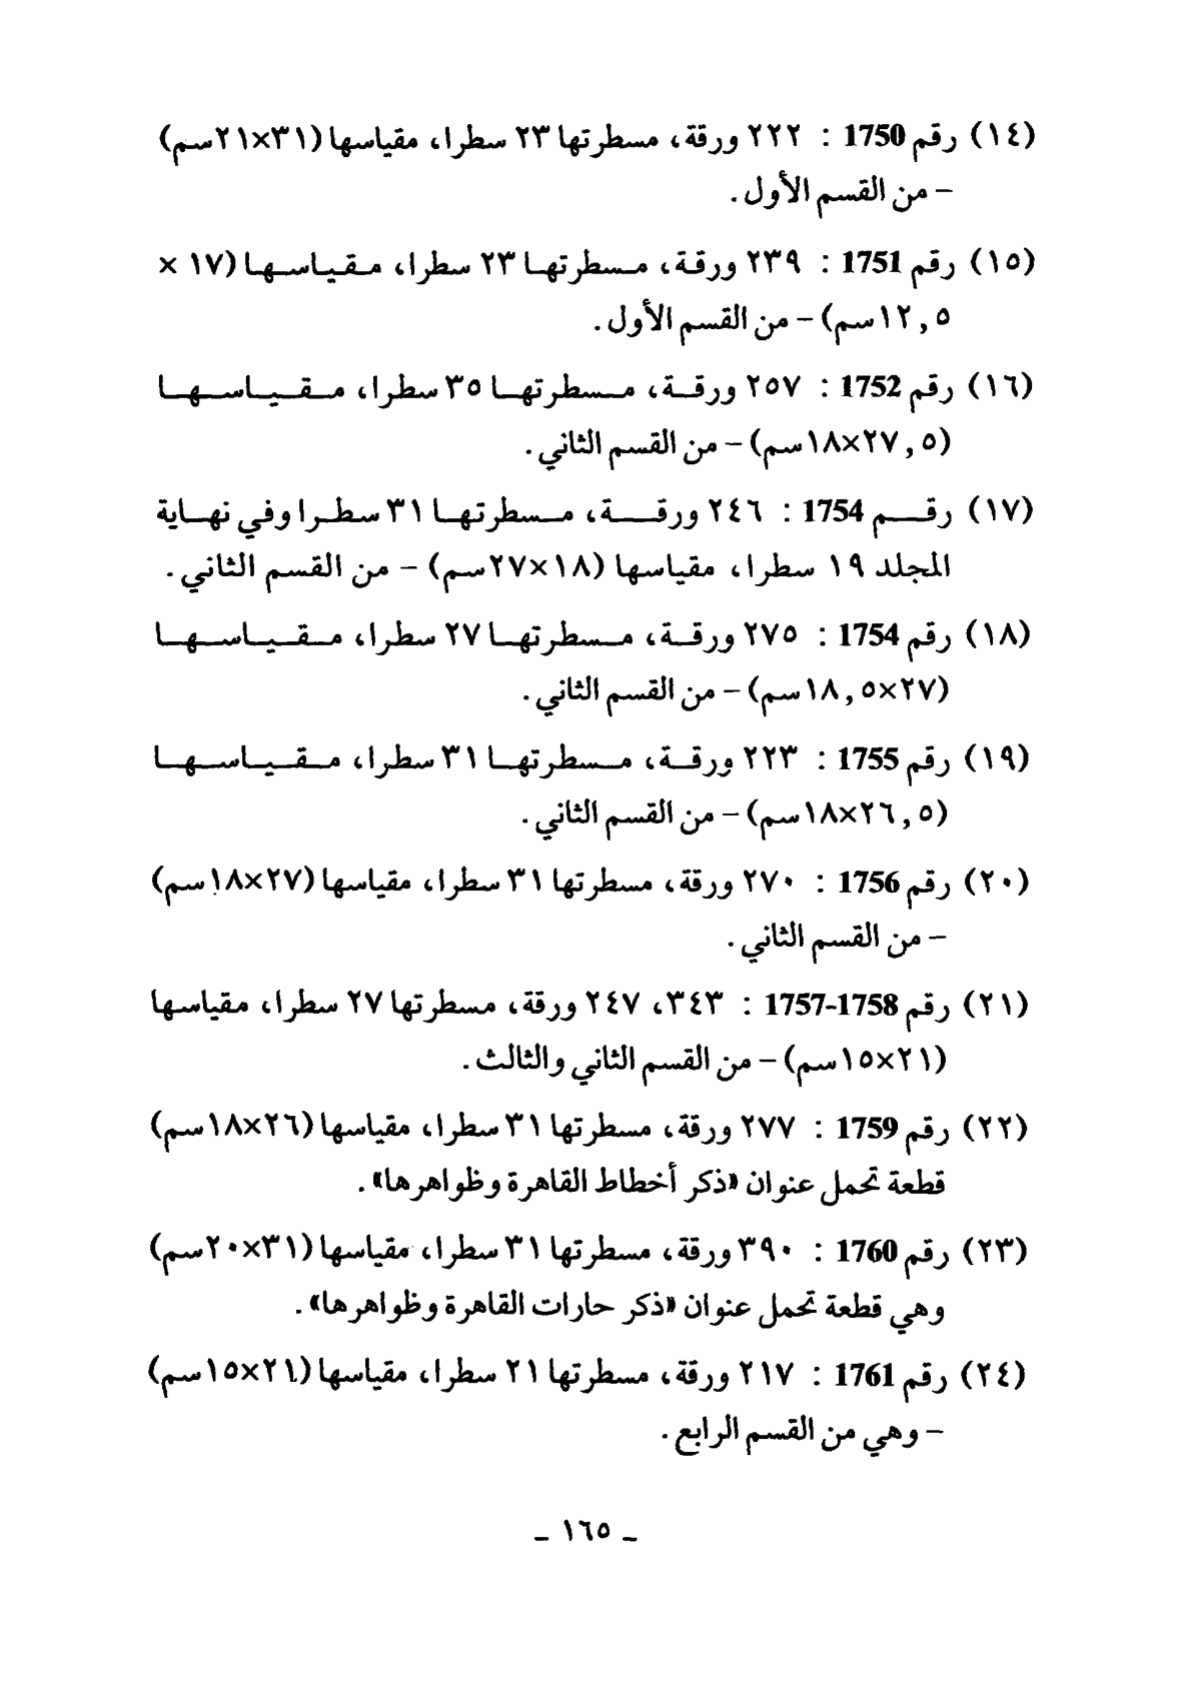 (١٤) رقم 1750 : ٢٢٢ ورقة، مسطرتها ٢٣ سطرا، مقياسها (٣١×٢١سم)
– من القسم الأول.
(١٥) رقم 1751 : ٢٣٩ ورقة، مسطرتها ٢٣ سطرا، مقياسها (١٧ ×
١٢,٥سم) – من القسم الأول.
(١٦) رقم 1752 : ٢٥٧ ورقة، مسطرتها ٣٥ سطرا، مقياسها
(٢٧,٥×١٨سم) – من القسم الثاني.
(١٧) رقم 1754 : ٢٤٦ ورقة، مسطرتها ٣١ سطرا وفي نهاية
المجلد ١٩ سطرا، مقياسها (١٨×٢٧سم) – من القسم الثاني.
(١٨) رقم 1754 : ٢٧٥ ورقة، مسطرتها ٢٧ سطرا، مقياسها
(٢٧×١٨,٥سم) – من القسم الثاني.
(١٩) رقم 1755 : ٢٢٣ ورقة، مسطرتها ٣١ سطرا، مقياسها
(٢٦,٥×١٨سم) – من القسم الثاني.
(٢٠) رقم 1756 : ٢٧٠ ورقة، مسطرتها ٣١ سطرا، مقياسها (٢٧×١٨سم)
– من القسم الثاني.
(٢١) رقم 1757-1758 : ٣٤٣، ٢٤٧ ورقة، مسطرتها ٢٧ سطرا، مقياسها
(٢١×١٥سم) – من القسم الثاني والثالث.
(٢٢) رقم 1759 : ٢٧٧ ورقة، مسطرتها ٣١ سطرا، مقياسها (٢٦×١٨سم)
قطعة تحمل عنوان «ذكر أخطاط القاهرة وظواهرها».
(٢٣) رقم 1760 : ٣٩٠ ورقة، مسطرتها ٣١ سطرا، مقياسها (٣١×٢٠سم)
وهي قطعة تحمل عنوان «ذكر حارات القاهرة وظواهرها».
(٢٤) رقم 1761 : ٢١٧ ورقة، مسطرتها ٢١ سطرا، مقياسها (٢١×١٥سم)
– وهي من القسم الرابع.
– ١٦٥ –